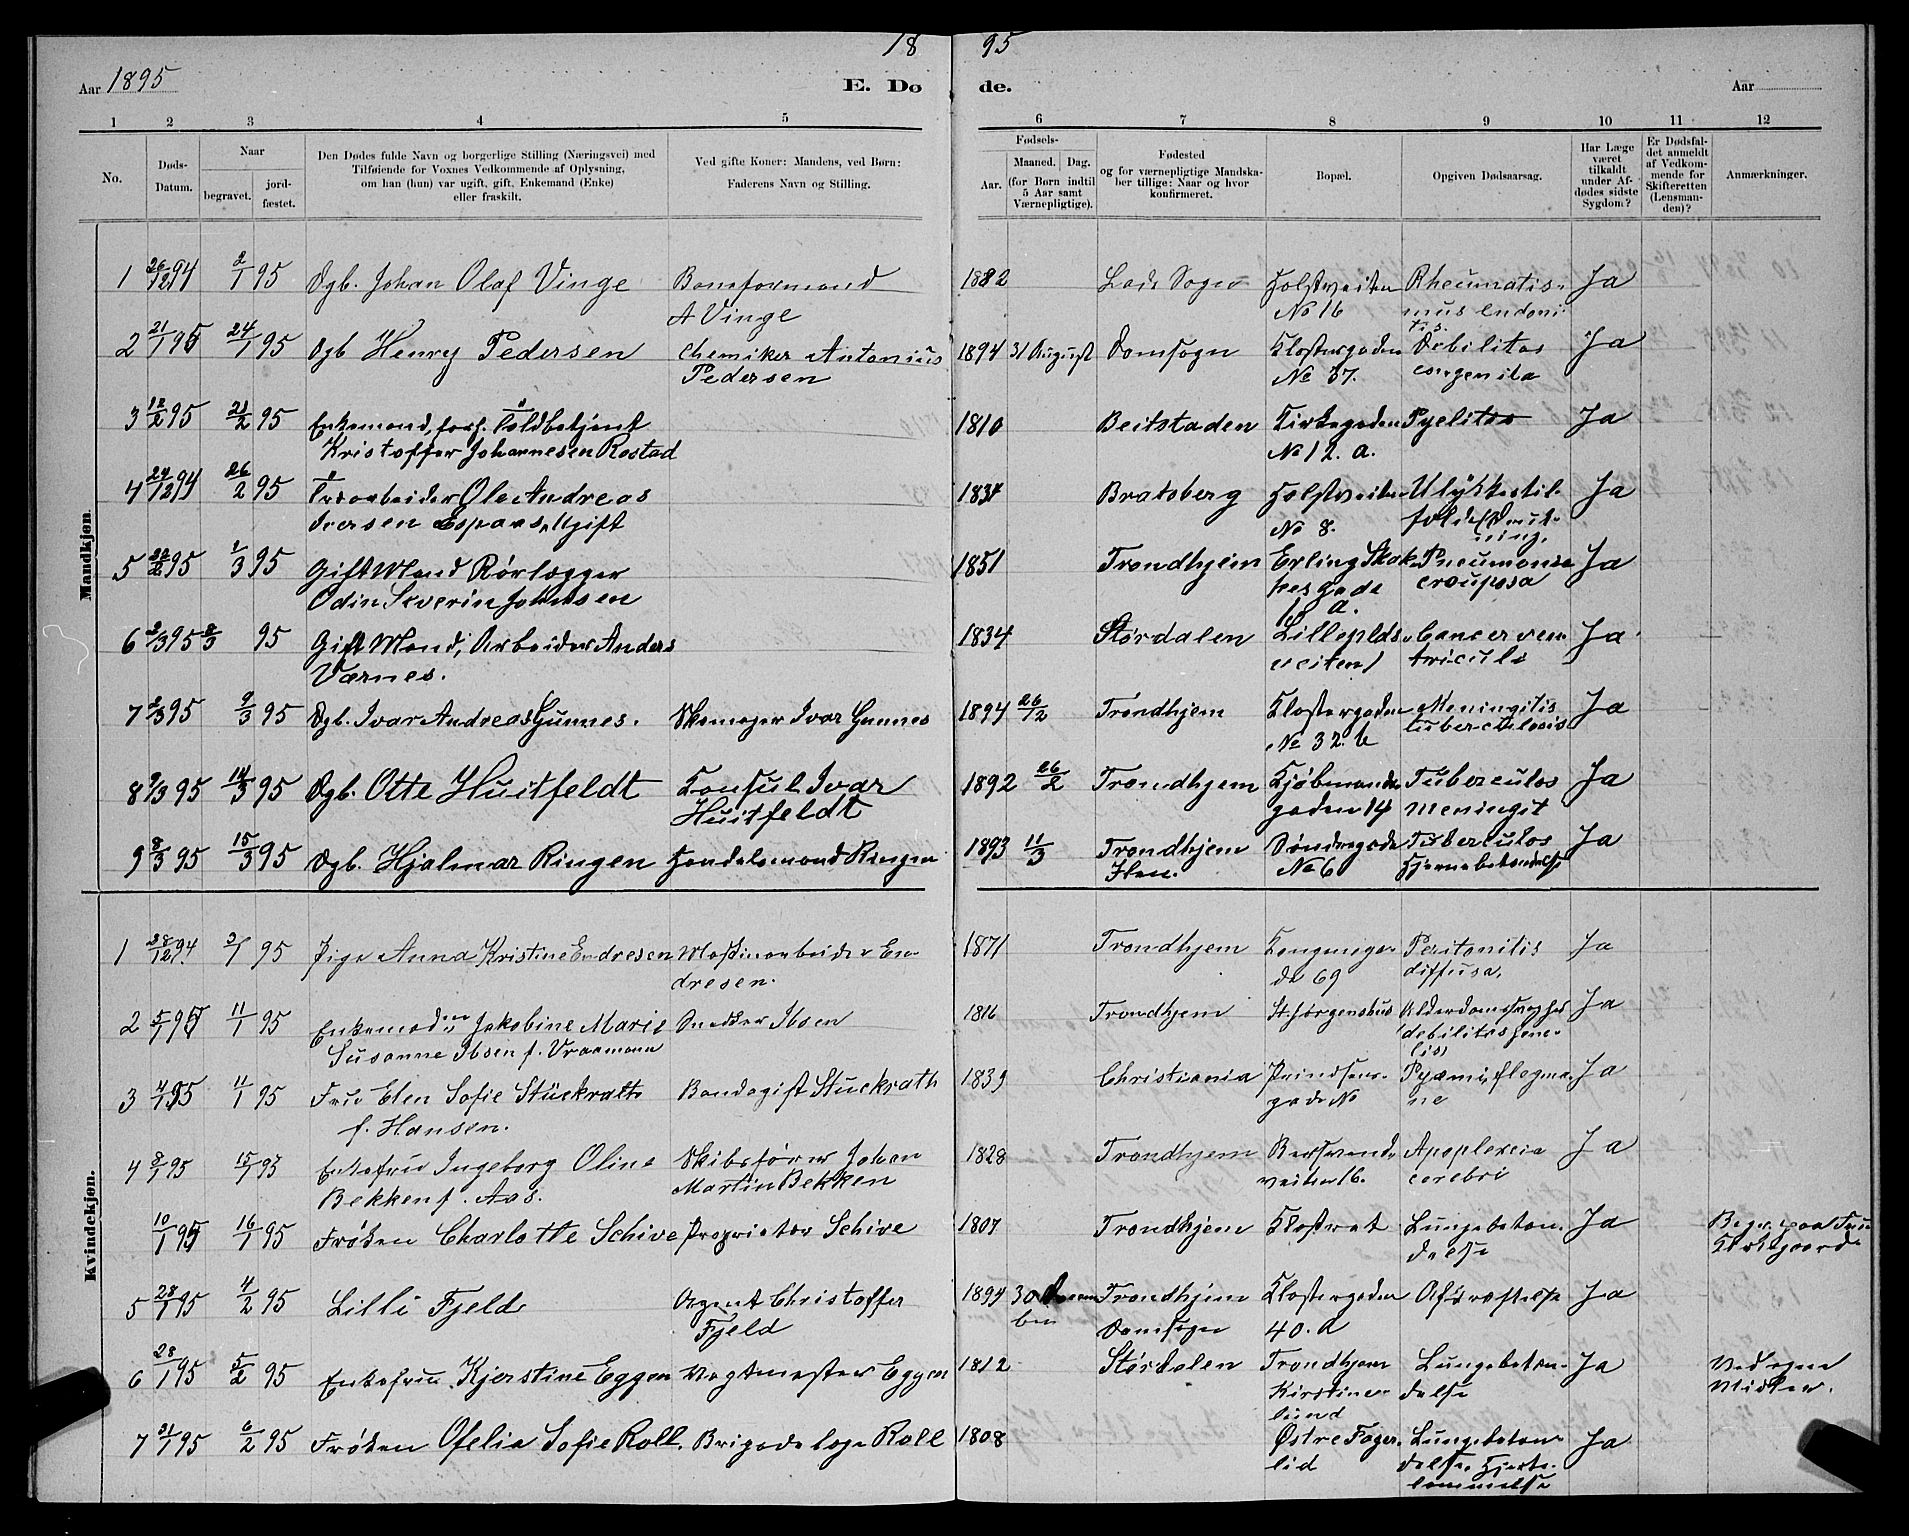 18 95
Aar 1895
E. Dø de.
Aar
1 2 3 4 5 6 7 8 9 10 11 12
No.
Døds-
Datum.
Naar
begravet.
jord-
fæstet.
Den Dødes fulde Navn og borgerlige Stilling (Næringsvei) med
Tilføiende for Voxnes Vedkommende af Oplysning,
om han (hun) var ugift, gift, Enkemand (Enke)
eller fraskilt.
Ved gifte Koner: Mandens, ved Børn:
Faderens Navn og Stilling.
Fødsels-
Aar.
Maaned. Dag.
(for Børn indtil
5 Aar samt
Værnepligtige).
Fødested
og for værnepligtige Mandska-
ber tillige: Naar og hvor
konfirmeret.
Bopæl.
Opgiven Dødsaarsag.
Har Læge
været
tilkaldt
under Af-
dødes sidste
Sygdom?
Er Dødsfal-
det anmeldt
af Vedkom-
mende for
Skifteretten
(Lensman-
den)?
Anmærkninger.
Mandkjøn.
1 26/12 94 2/1 95 Dgb. Johan Olaf Vinge Baneformand 1882 Lade Sogn Holstveiten Rheumatis- Ja
A Vinge No 16 mus endoni-
tis.
2 21/1 95 24/1 95 Dgb Henry Pedersen Chemiker Antonius 1894 31 August Domsogn Klostergaden Debilitas Ja
Pedersen No 37. congenita
3 12/2 95 21/2 95 Enkemand, forh. Toldbetjent 1810 Beitstaden Kirkegaden Pyelitis Ja
Kristoffer Johannesen Rostad No 12. a.
4 24/12 94 26/2 95 Ole Andreas 1834 Bratsberg Holstveiten Ulykkestil- Ja
Iversen Espaas, Ugift No 8. fælde (Druk-
ning.
5 22/2 95 1/3 95 Gift Mand Rørlægger 1851 Trondhjem Erling Skak- Pneumonia Ja
Odin Severin Johnsen kesgade crouposa
10 a.
6 2/3 95 8/3 95 Gift Mand, Arbeider Anders 1834 Størdalen Cancer ven- Ja
Værnes. veiten 1 triculi
7 2/3 95 9/3 95 Dgb. Ivar Andreas Gunnes. Skomager Ivar Gunnes 1894 26/12 Trondhjem Klostergaden Meningitis Ja
No 32. b tuberculosis
8 9/3 95 14/3 95 Dgb. Otte Huitfeldt Konsul Ivar 1892 26/2 Trondhjem Kjøbmands- Tuberculos Ja
Huitfeldt gaden 14 meningit
9 8/3 95 15/3 95 Dgb. Hjalmar Ringen Handelsmand Ringen 1893 11/3 Trondhjem Tuberculos Ja
Ilen. No 6 Hjernebetændelse
Kvindekjøn.
1 28/12 94. 3/1 95 Pige Anna Kristine Endresen Maskinarbeider En- 1871 Trondhjem Kongensga- Peritonitis Ja
dresen. de 69 diffusa.
2 5/1 95 11/1 95 Jakobine Marie Snedker Ibsen 1816 Trondhjem St. Jørgenshus Alderdomssvaghed Ja
Susanne Ibsen f. Vraamann debilitas seni-
lis)
3 4/1 95 11/1 95 Fru Elen Sofie Stückrath Bandagist Stuckrath 1839 Christiania Prindsens- Pyæmi, flegmo- Ja
f. Hansen. gade No ne
4 8/1 95 15/1 95 Enkefru Ingeborg Oline Skibsfører Johan 1828 Trondhjem Apoplexia Ja
Bekken f. Aas. Martin Bekken veiten 16. cerebri
10/1 95 16/1 95 Frøken Charlotte Schive Proprietær Schive 1807 Trondhjem Klosteret Lungebetæn- Ja Begr. paa
delse
5 28/1 95 4/2 95 Lilli Fjeld Agent Christoffer 1894 30 Trondhjem Klostergaden Ja
Fjeld Domsogn 40. a
6 28/1 95 5/2 95 Enkefru Kjerstine Eggen Vagtmester Eggen 1812 Størdalen Trondhjem Lungebetæn- Ja Ved egne
Kirstine- delse Midler.
lund
7 31/1 95 6/2 95 Frøken Ofelia Sofie Roll. Brigadelæge Roll 1808 Østre Fager- Lungebetæn- Ja
lid delse, Hjerte-
lammelse